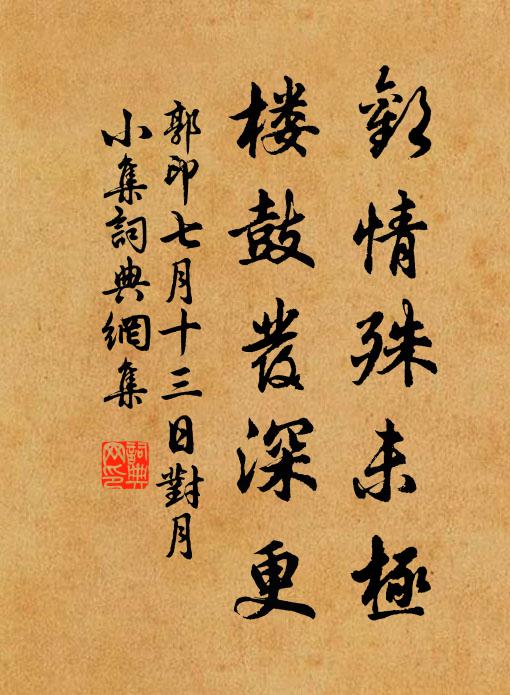 歡情殊未極
楼鼓發深更
郭印七月十三日對月
小集詞典網集
詞典